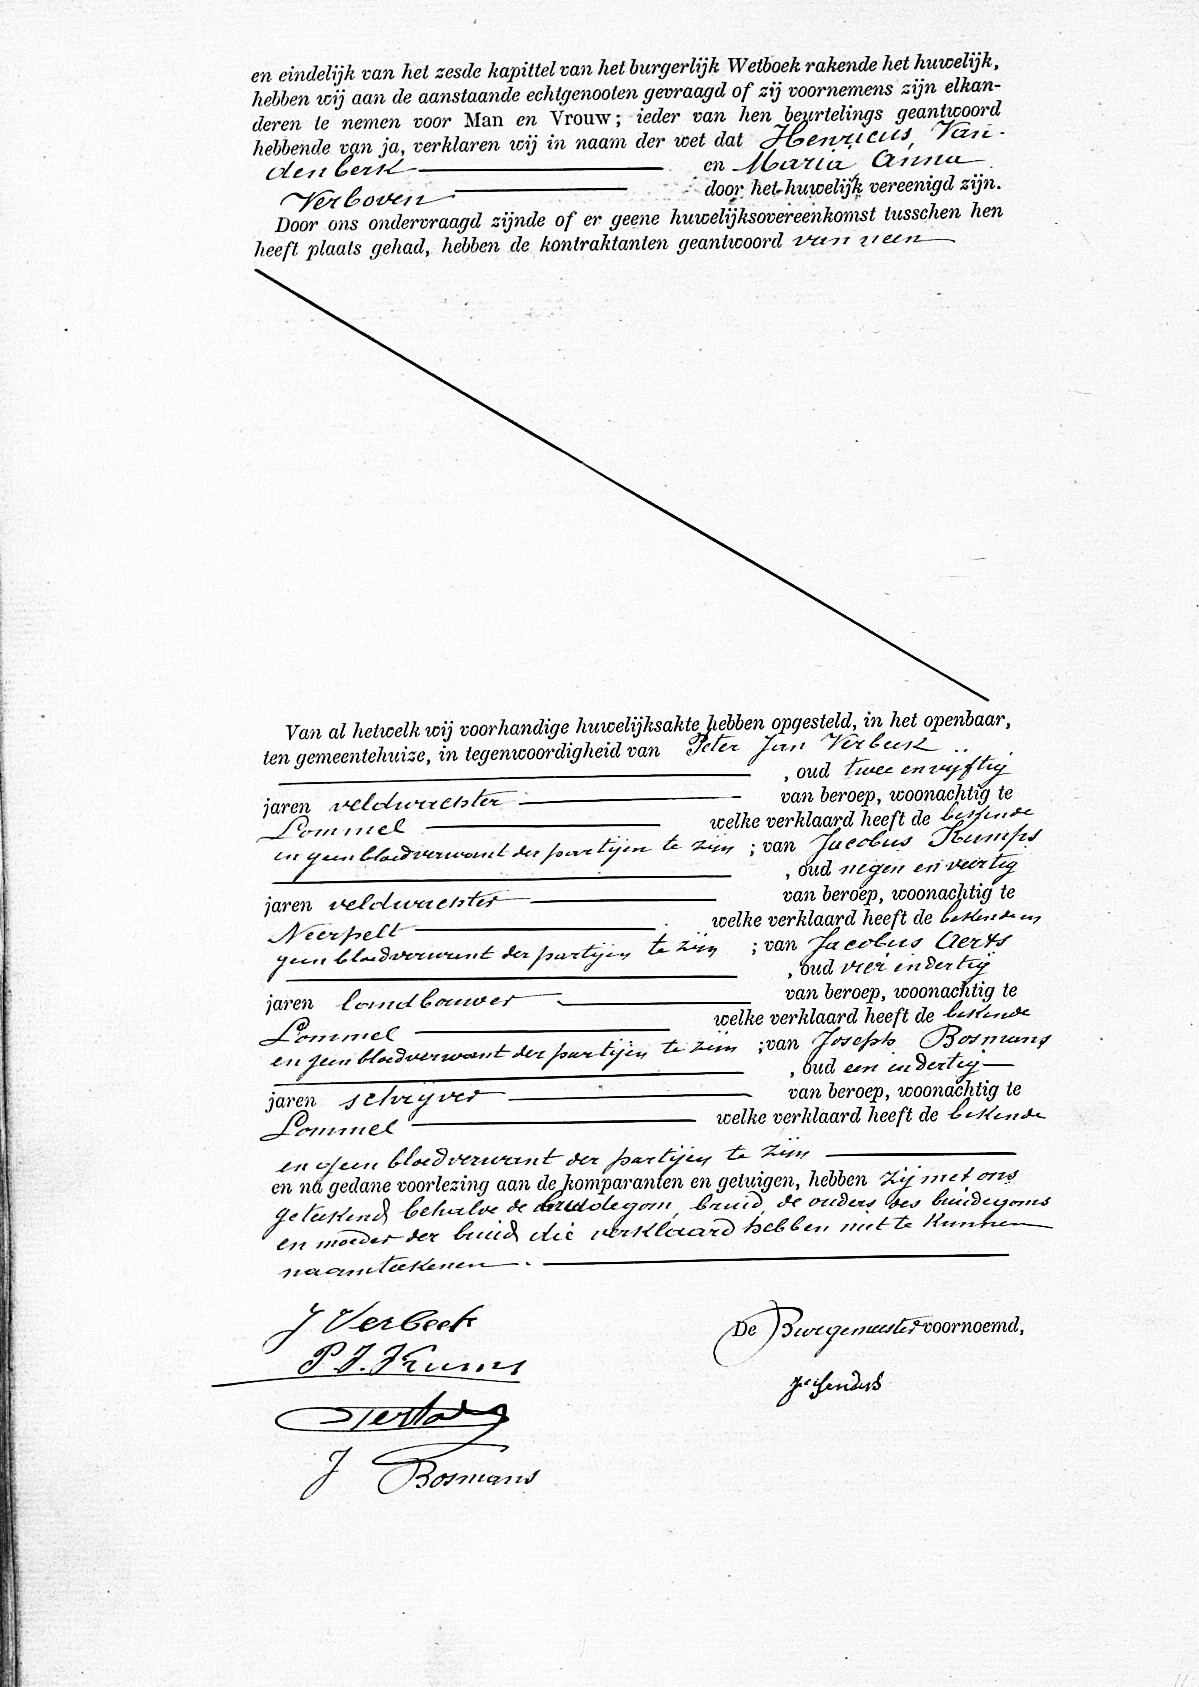 en eindelijk van het zesde kapittel van het burgerlijk Wetboek rakende het huwelijk,
hebben wij aan de aanstaande echtgenooten gevraagd of zij voornemens zijn elkan-
deren te nemen voor Man en Vrouw; ieder van hen beurtelings geantwoord
hebbende van ja, verklaren wij in naam der wet dat Henricus, Van-
denberk en Maria Anna
Verboven door het huwelijk vereenigd zijn.
Door ons ondervraagd zijnde of er geene huwelijksovereenkomst tusschen hen
heeft plaats gehad, hebben de kontraktanten geantwoord van neen
Van al hetwelk wij voorhandige huwelijksakte hebben opgesteld, in het openbaar,
ten gemeentehuize, in tegenwoordigheid van Peter Jan Verbeek
, oud twee en vijftig
jaren veldwachter van beroep, woonachtig te
Lommel welke verklaard heeft de bekende
en geen bloedverwant der partijen te zijn ; van Jacobus Kumps
, oud negen en veertig
jaren veldwachter van beroep, woonachtig te
Neerpelt welke verklaard heeft de bekende en
geen bloedverwant der partijen te zijn ; van Jacobus Aerts
, oud vier en dertig
jaren landbouwer van beroep, woonachtig te
Lommel welke verklaard heeft de bekende
en geen bloedverwant der partijen te zijn ; van Joseph Bosmans
, oud een en dertig
jaren schrijver van beroep, woonachtig te
Lommel welke verklaard heeft de bekende
en geen bloedverwant der partijen te zijn
en na gedane voorlezing aan de komparanten en getuigen, hebben zij met ons
geteekend behalve de bruidegom, bruid, de ouders des bruidegoms
en moeder der bruid die verklaard hebben niet te kunnen
naamteekenen.
J Verbeek
De Burgemeester voornoemd,
P. J. Kums
J Bosmans